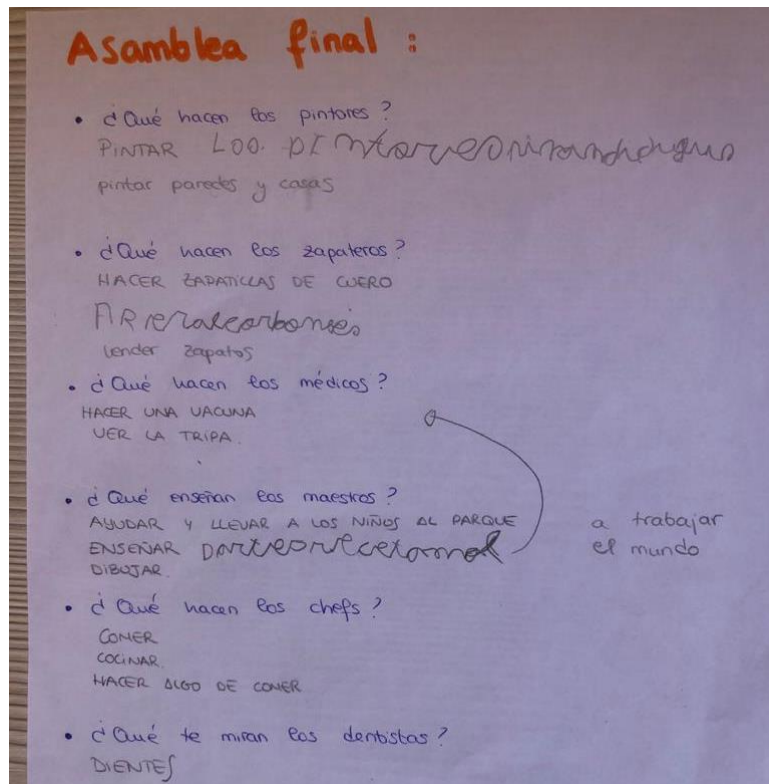 Asamblea final :
• ¿Qué hacen los pintores?
PINTAR LOO.
pintar paredes y casas
• ¿Qué hacen los zapateros?
HACER ZAPATILLAS DE CUERO
vender zapatos
• ¿Qué hacen los médicos?
HACER UNA VACUNA
VER LA TRIPA.
• ¿Qué enseñan los maestros?
AYUDAR Y LLEVAR A LOS NIÑOS AL PARQUE
ENSEÑAR
DIBUJAR.
a trabajar
el mundo
• ¿Qué hacen los chefs?
COMER
COCINAR.
HACER ALGO DE COMER
• ¿Qué te miran los dentistas?
DIENTES